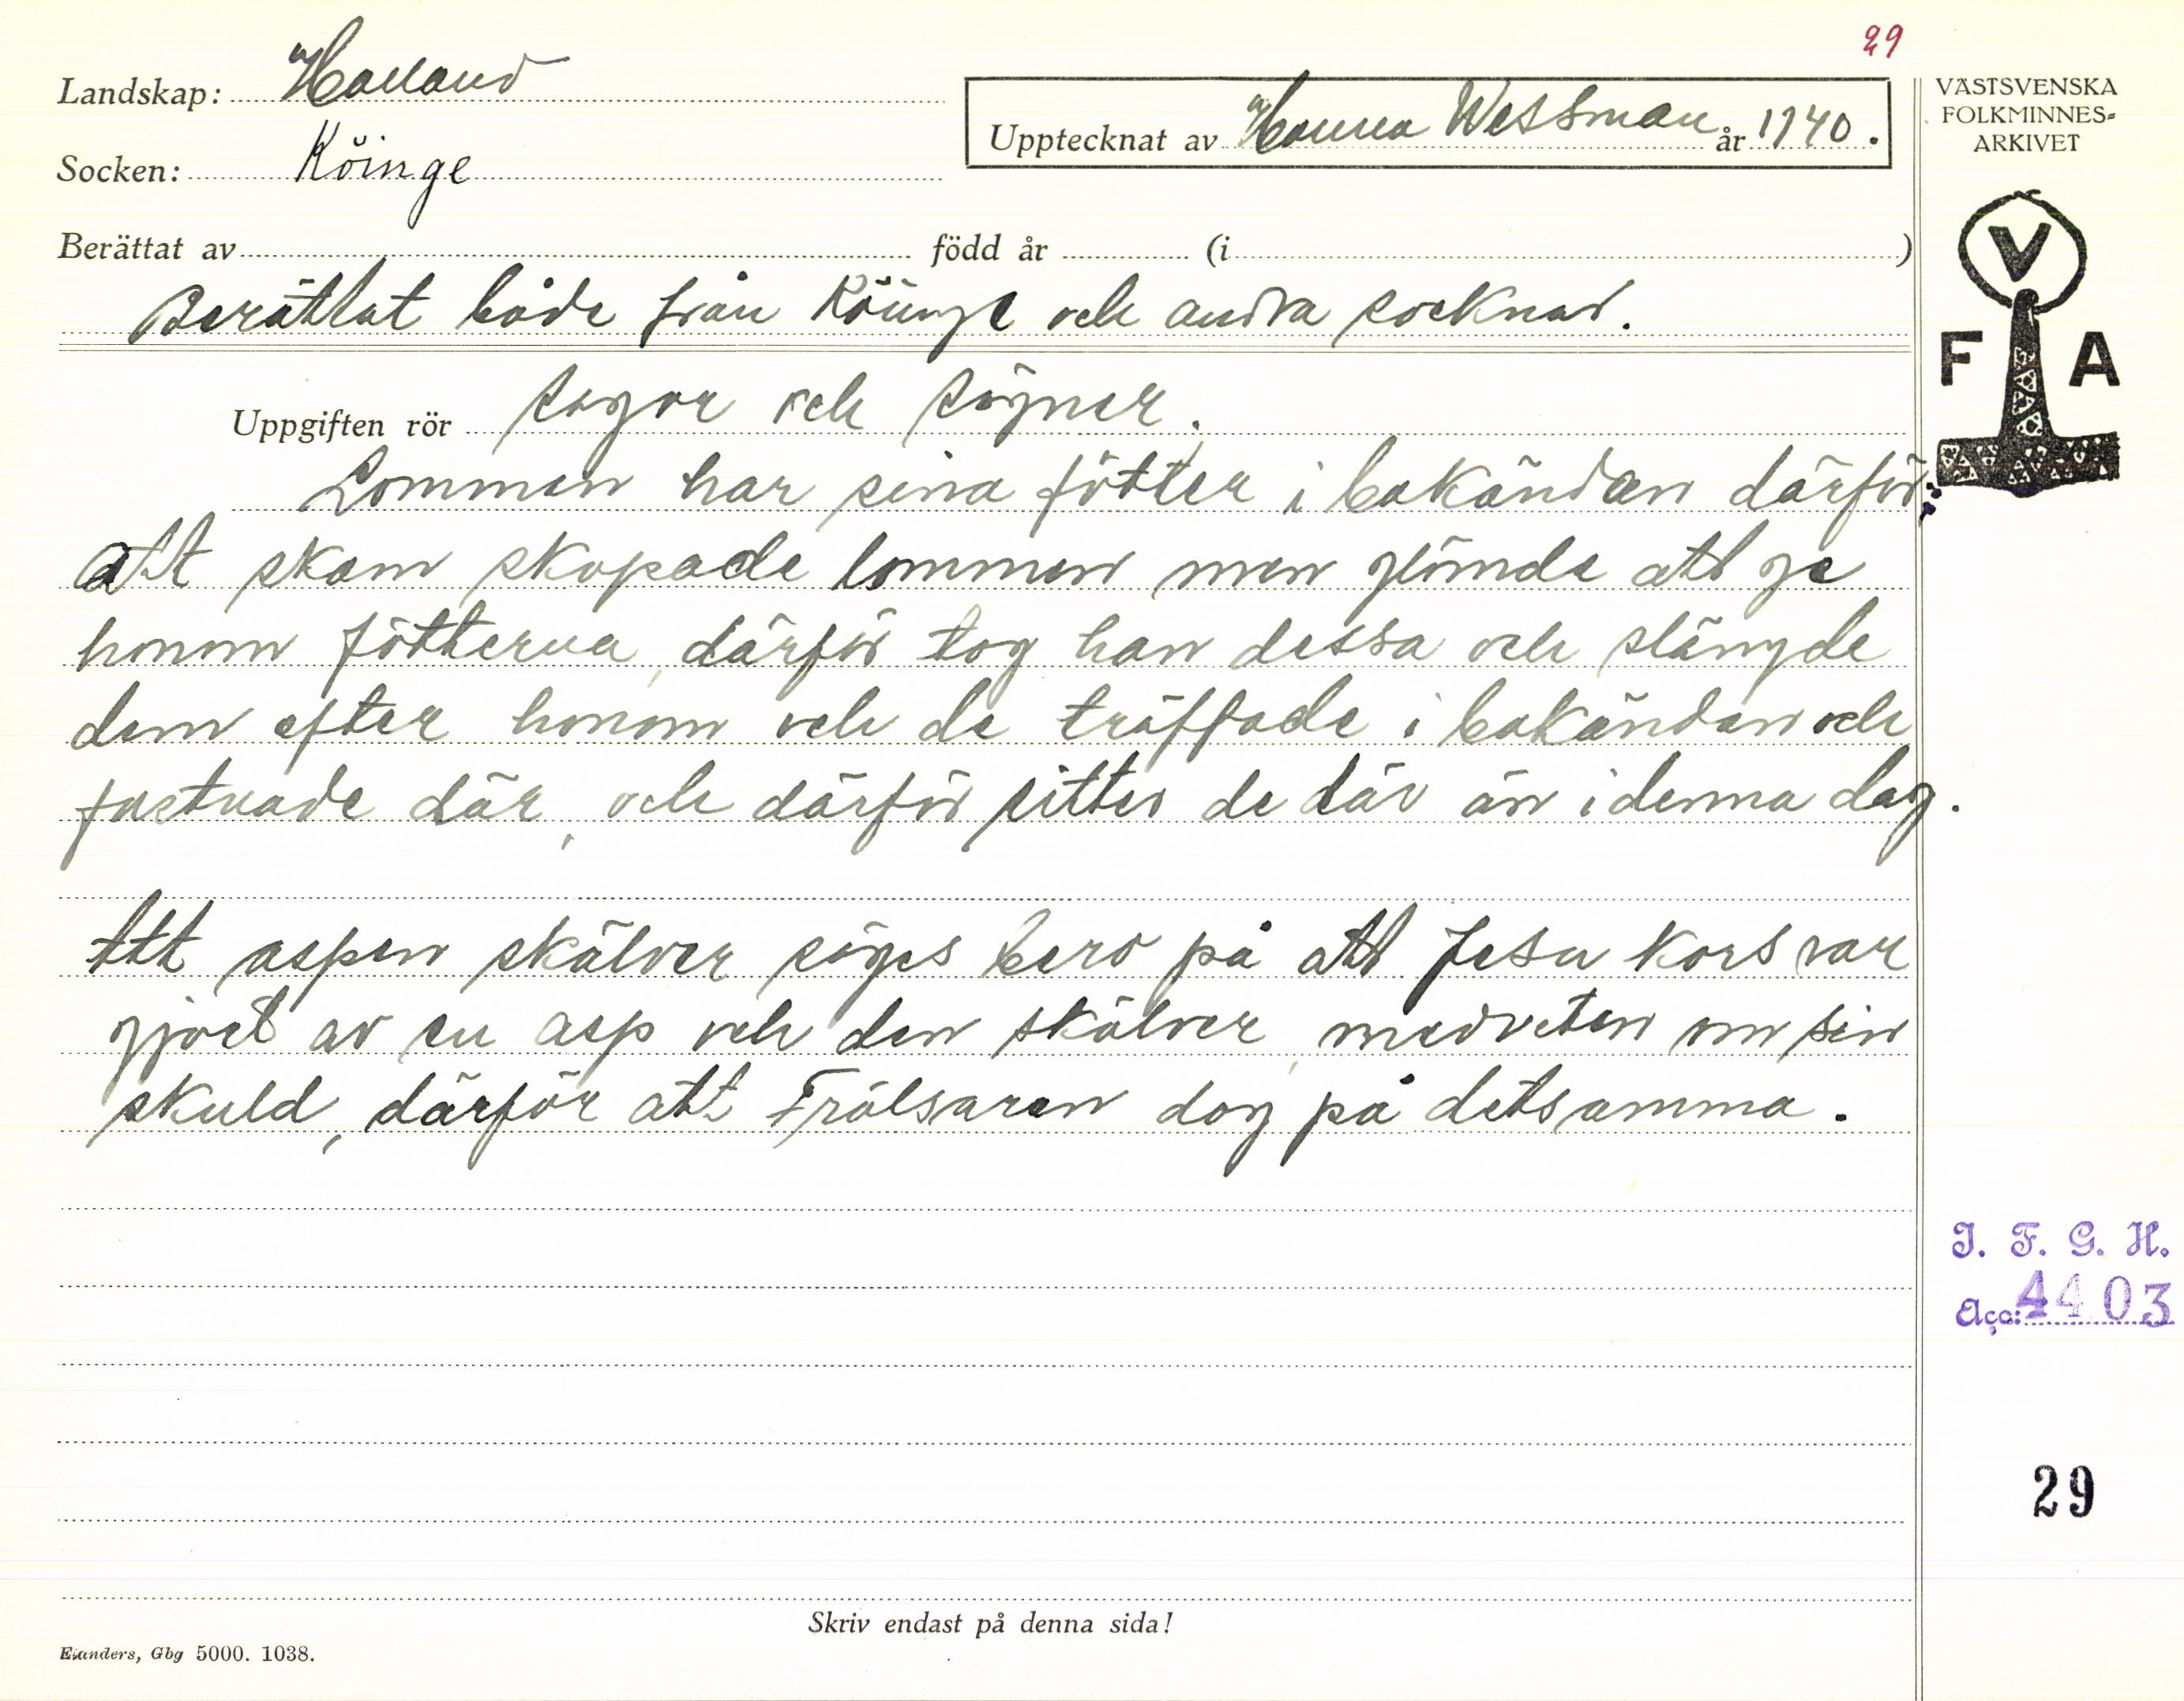 29
Landskap: Halland
Upptecknat av Hanna Wessman år 1940.
VÄSTSVENSKA
FOLKMINNES-
ARKIVET
Socken: Köinge
Berättat av född år (i )
Berättat både från Köinge och andra socknar.
V
F A
Uppgiften rör sagor och sägner.
Lommen har sina fötter i bakändan därför
att skam skapade lommen men glömde att ge
honom fötterna, därför tog han dessa och slängde
dem efter honom och de träffade i bakändan och
fastnade där, och därför sitter de där än i denna dag.
Att aspen skälver säges bero på att Jesu kors var
gjort av en asp och den skälver, medveten om sin
skuld, därför att Frälsaren dog på detsamma.
I. F. G. H.
Acc: 4403
29
Skriv endast på denna sida!
Elanders, Gbg 5000. 1038.